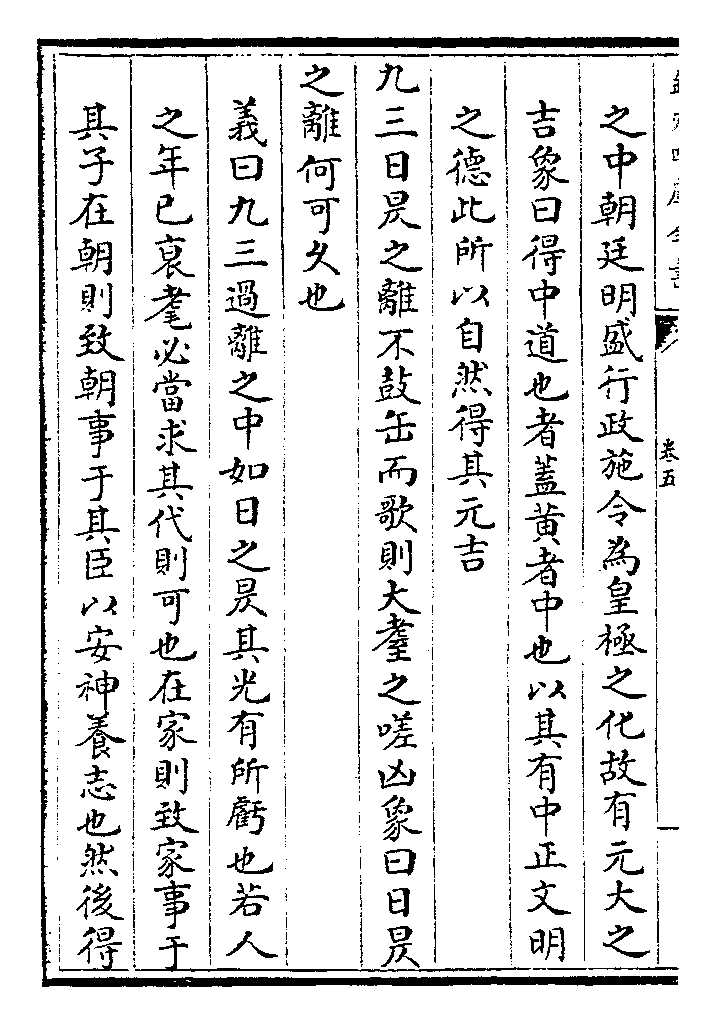 欽定四庫全書
卷五
之中朝廷明盛行政施令為皇極之化故有元大之
吉象曰得中道也者蓋黃者中也以其有中正文明
之德此所以自然得其元吉
九三日昃之離不鼓缶而歌則大耋之嗟凶象曰日昃
之離何可久也
義曰九三過離之中如日之昃其光有所虧也若人
之年已衰耄必當求其代則可也在家則致家事于
其子在朝則致朝事于其臣以安神養志也然後得